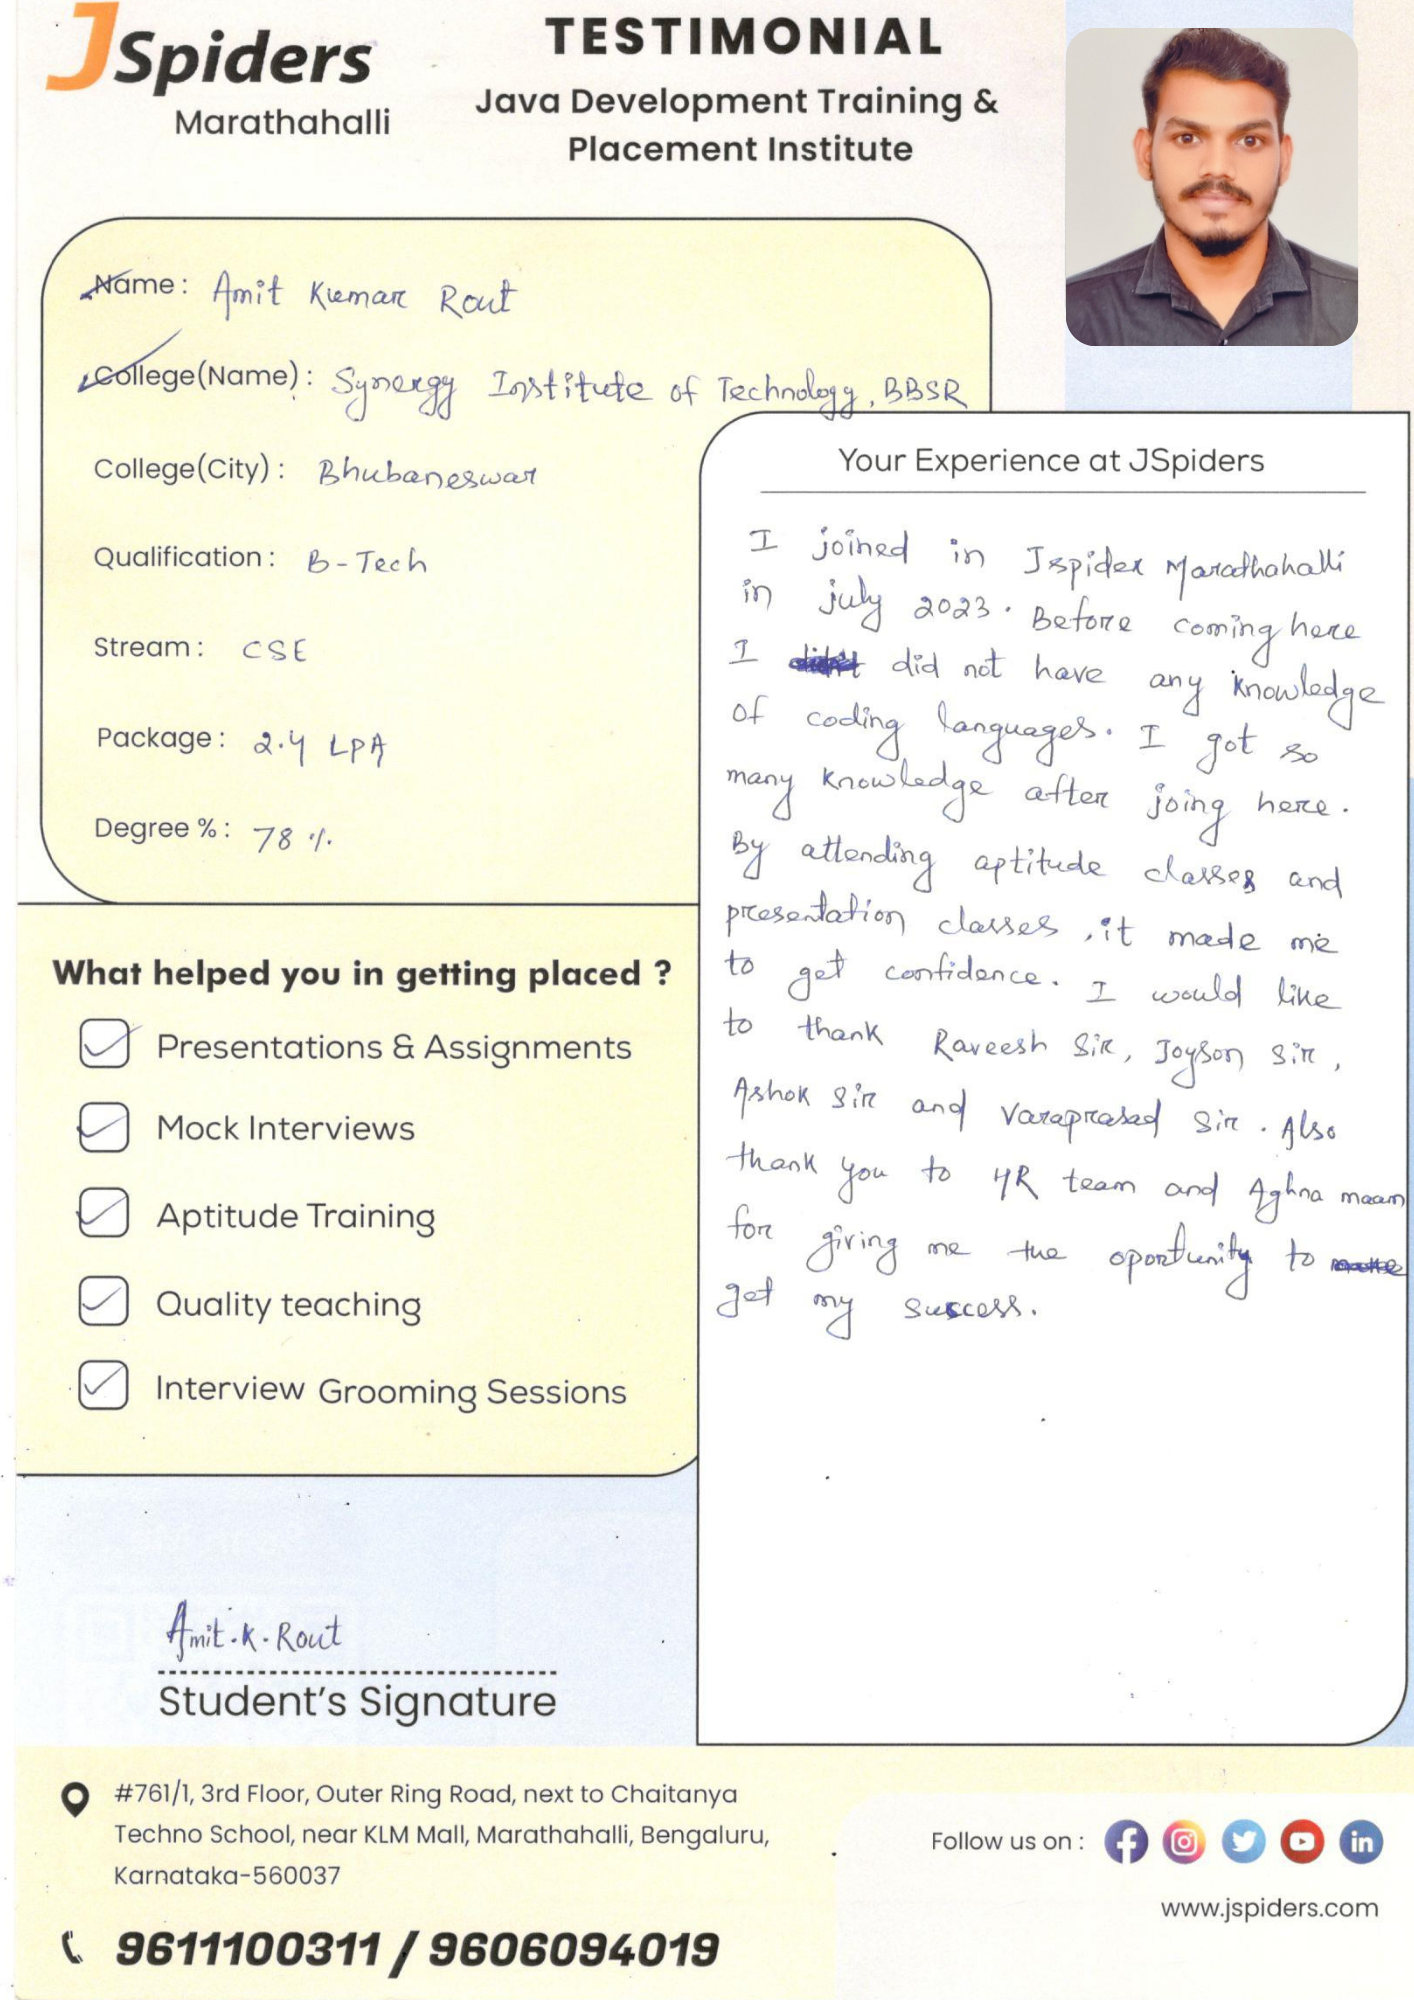 JSpiders
Marathahalli
TESTIMONIAL
Java Development Training &
Placement Institute
Name : Amit Kumar Rout
College(Name) : Synergy Institute of Technology, BBSR
College(City) : Bhubaneswar
Qualification : B-Tech
Stream : CSE
Package : 2.4 LPA
Degree % : 78 %
What helped you in getting placed ?
Presentations & Assignments
Mock Interviews
Aptitude Training
Quality teaching
Interview Grooming Sessions
Your Experience at JSpiders
I joined in Jspider Marathahalli
in july 2023. Before coming here
I did not have any knowledge
of coding languages. I got so
many knowledge after joing here.
By attending aptitude classes and
presentation classes, it made me
to get confidence. I would like
to thank Raveesh Sir, Joyson Sir,
Ashok Sir and Varaprasad Sir. Also
thank you to HR team and Aghna maam
for giving me the oportunity to
get my success.
Amit.K.Rout
Student's Signature
#761/1, 3rd Floor, Outer Ring Road, next to Chaitanya
Techno School, near KLM Mall, Marathahalli, Bengaluru,
Karnataka-560037
9611100311 / 9606094019
Follow us on :
www.jspiders.com